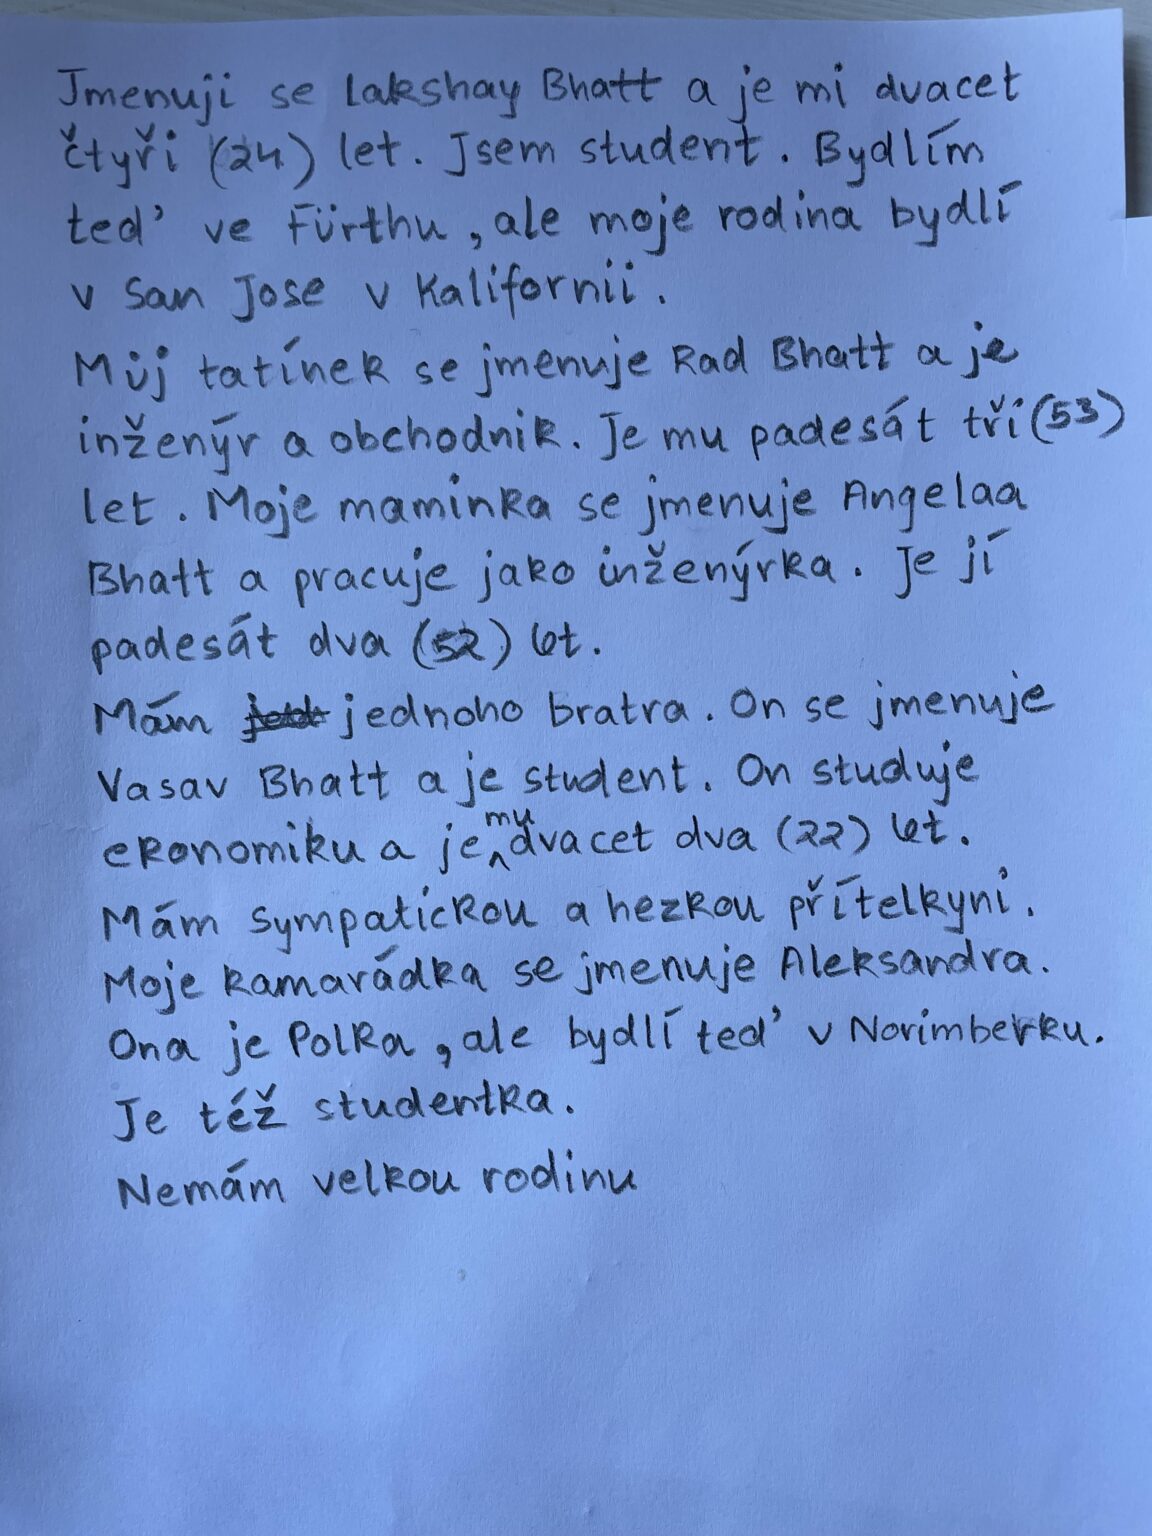 Jmenuji se Lakshay Bhatt a je mi dvacet
čtyři (24) let. Jsem student. Bydlím
teď ve Fürthu, ale moje rodina bydlí
v San Jose v Kalifornii.
Můj tatínek se jmenuje Rad Bhatt a je
inženýr a obchodnik. Je mu padesát tři (53)
let. Moje maminka se jmenuje Angelaa
Bhatt a pracuje jako inženýrka. Je jí
padesát dva (52) let.
Mám jednoho bratra. On se jmenuje
Vasav Bhatt a je student. On studuje
ekonomiku a je mu dvacet dva (22) let.
Mám sympatickou a hezkou přítelkyni.
Moje kamarádka se jmenuje Aleksandra.
Ona je Polka, ale bydlí teď v Norimberku.
Je též studentka.
Nemám velkou rodinu